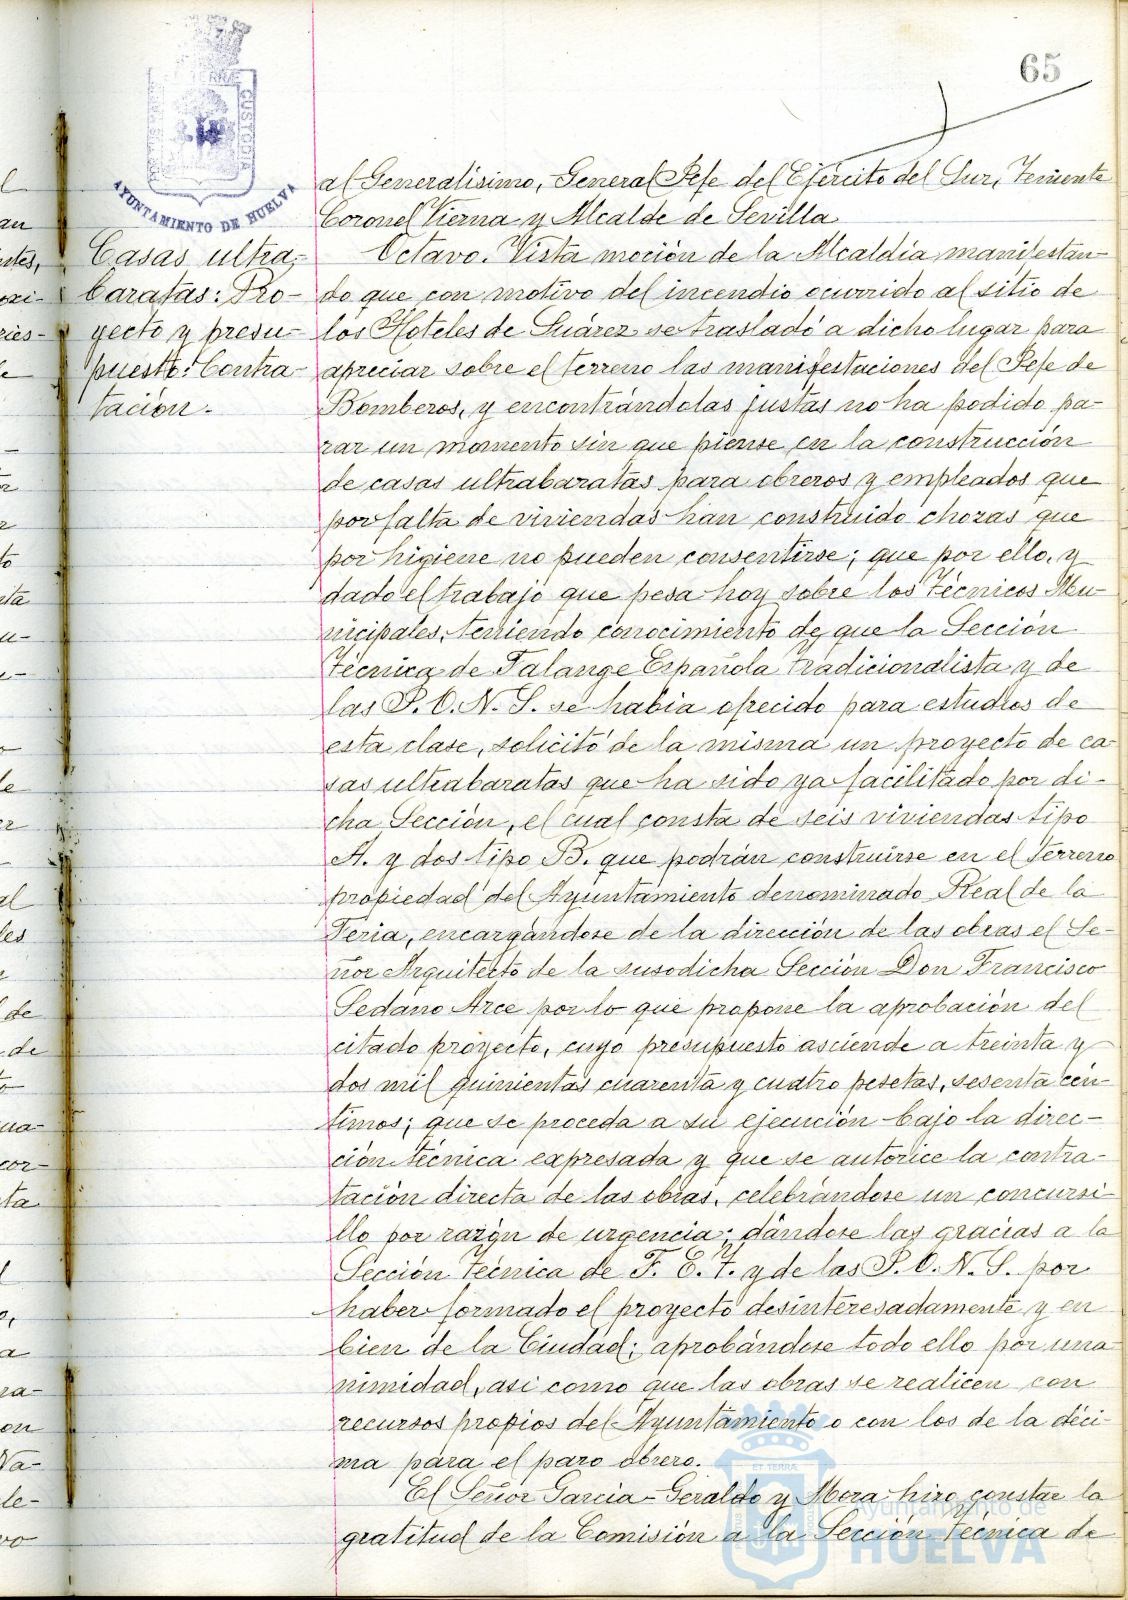 65
AYUNTAMIENTO DE HUELVA
Casas ultra-
baratas: Pro-
yecto y presu-
puesto: Contra-
tación.
al Generalísimo, General Jefe del Ejército del Sur, Teniente
Coronel Vierna y Alcalde de Sevilla
Octavo. Vista moción de la Alcaldía manifestan-
do que con motivo del incendio ocurrido al sitio de
los Hoteles de Suárez se trasladó a dicho lugar para
apreciar sobre el terreno las manifestaciones del Jefe de
Bomberos, y encontrándolas justas no ha podido pa-
rar un momento sin que piense en la construcción
de casas ultrabaratas para obreros y empleados que
por falta de viviendas han construido chozas que
por higiene no pueden consentirse; que por ello, y
dado el trabajo que pesa hoy sobre los Técnicos Mu-
nicipales, teniendo conocimiento de que la Sección
Técnica de Falange Española Tradicionalista y de
las J.O.N.S. se había ofrecido para estudios de
esta clase, solicitó de la misma un proyecto de ca-
sas ultrabaratas que ha sido ya facilitado por di-
cha Sección, el cual consta de seis viviendas tipo
A. y dos tipo B. que podrán construirse en el terreno
propiedad del Ayuntamiento denominado Real de la
Feria, encargándose de la dirección de las obras el Se-
ñor Arquitecto de la susodicha Sección Don Francisco
Sedano Arce por lo que propone la aprobación del
citado proyecto, cuyo presupuesto asciende a treinta y
dos mil quinientas cuarenta y cuatro pesetas, sesenta cén-
timos; que se proceda a su ejecución bajo la direc-
ción técnica expresada y que se autorice la contra-
tación directa de las obras, celebrándose un concursi-
llo por razón de urgencia; dándose las gracias a la
Sección Técnica de F. E. T. y de las J.O.N.S. por
haber formado el proyecto desinteresadamente y en
bien de la Ciudad; aprobándose todo ello por una-
nimidad, así como que las obras se realicen con
recursos propios del Ayuntamiento o con los de la déci-
ma para el paro obrero.
El Señor García-Geraldo y Mora hizo constar la
gratitud de la Comisión a la Sección Técnica de
Ayuntamiento de
HUELVA